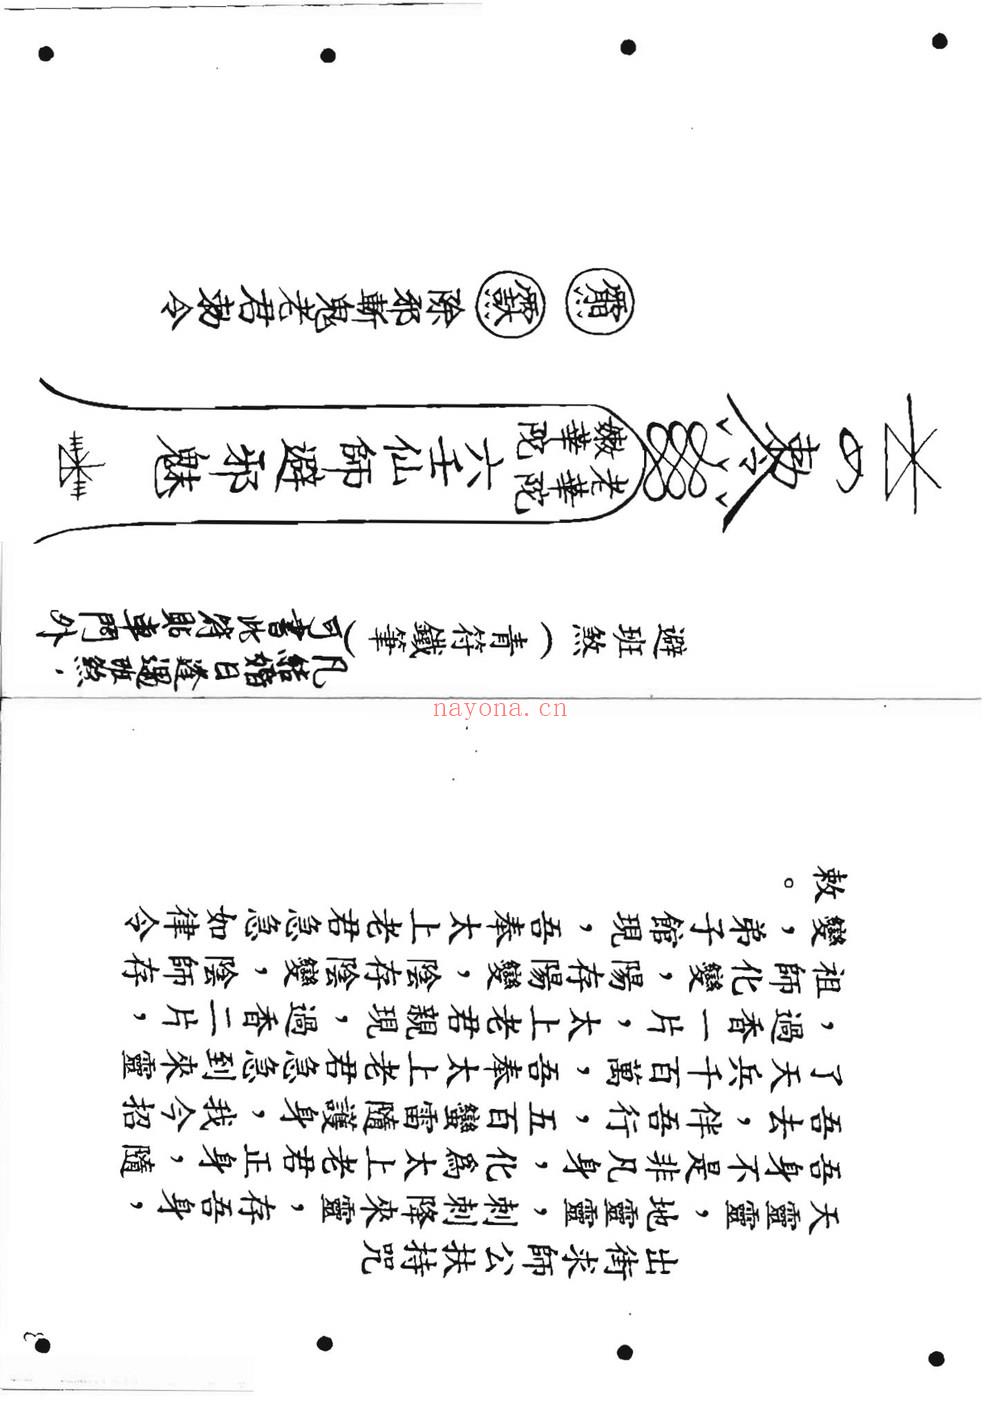 出街求師公扶持咒
天靈靈，地靈靈，刺刺降來靈，存吾身，
吾身不是非凡身，化為太上老君正身，隨
吾去，伴吾行，五百蠻雷隨護身，我今招
了天兵千百萬，吾奉太上老君急急到來靈
，過香一片，太上老君親現，過香二片，
祖師化變，陽存陽變，陰存陰變，陰師存
變，弟子館現，吾奉太上老君急急如律令
敕。
避班煞（青符鐵筆）
凡結婚日逢遇班煞．
可書此符貼車門外
敕令
老華陀
嫩華陀
六壬仙師避邪魅
除邪斬鬼老君敕令
nayona.cn